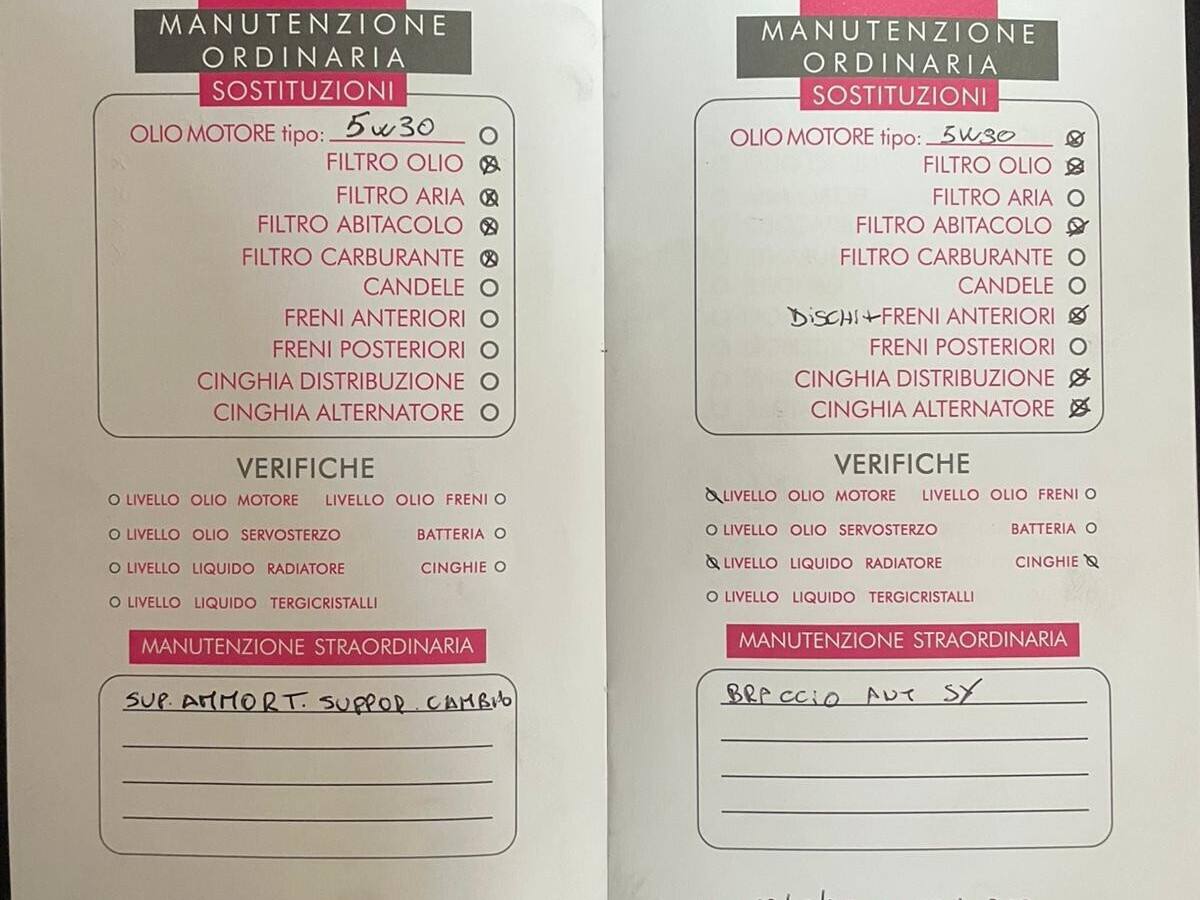 MANUTENZIONE
ORDINARIA
SOSTITUZIONI
OLIO MOTORE tipo: 5W30
FILTRO OLIO
FILTRO ARIA
FILTRO ABITACOLO
FILTRO CARBURANTE
CANDELE
FRENI ANTERIORI
FRENI POSTERIORI
CINGHIA DISTRIBUZIONE
CINGHIA ALTERNATORE
VERIFICHE
LIVELLO OLIO MOTORE LIVELLO OLIO FRENI
LIVELLO OLIO SERVOSTERZO BATTERIA
LIVELLO LIQUIDO RADIATORE CINGHIE
LIVELLO LIQUIDO TERGICRISTALLI
MANUTENZIONE STRAORDINARIA
SUP. AMMORT. SUPPOR. CAMBIO
MANUTENZIONE
ORDINARIA
SOSTITUZIONI
OLIO MOTORE tipo: 5W30
FILTRO OLIO
FILTRO ARIA
FILTRO ABITACOLO
FILTRO CARBURANTE
CANDELE
DISCHI + FRENI ANTERIORI
FRENI POSTERIORI
CINGHIA DISTRIBUZIONE
CINGHIA ALTERNATORE
VERIFICHE
LIVELLO OLIO MOTORE LIVELLO OLIO FRENI
LIVELLO OLIO SERVOSTERZO BATTERIA
LIVELLO LIQUIDO RADIATORE CINGHIE
LIVELLO LIQUIDO TERGICRISTALLI
MANUTENZIONE STRAORDINARIA
BRACCIO ANT SX